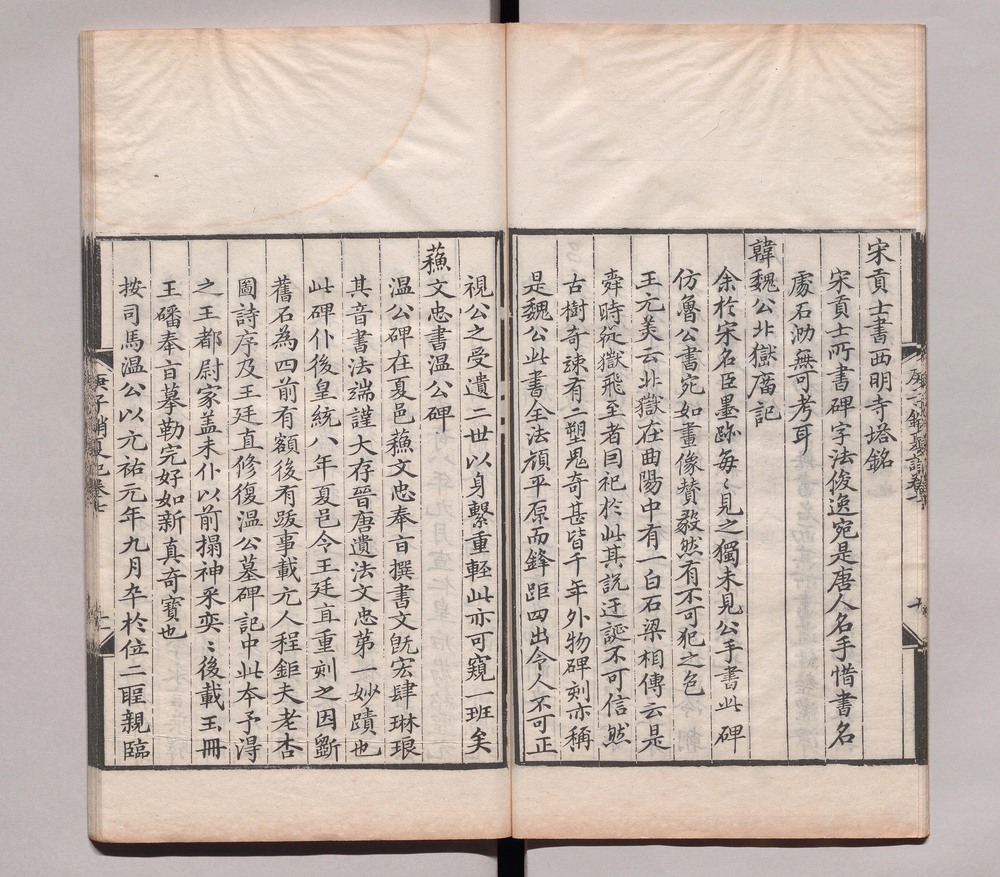 宋貢士書西明寺塔銘
宋貢士所書碑字法俊逸宛是唐人名手惜書名
處石泐無可考耳
韓魏公北嶽廟記
余於宋名臣墨跡每〻見之獨未見公手書此碑
仿魯公書宛如畫像贊毅然有不可犯之色
王元美云北嶽在曲陽中有一白石梁相傳云是
舜時從嶽飛至者因祀於此其說迂誕不可信然
古樹奇竦有二塑鬼奇甚皆千年外物碑刻亦稱
是魏公此書全法頏平原而鋒距四出令人不可正
視公之受遺二世以身繫重輕此亦可窺一班矣
蘓文忠書溫公碑
溫公碑在夏邑蘓文忠奉旨撰書文旣宏肆琳琅
其音書法端謹大存晉唐遺法文忠第一妙蹟也
此碑仆後皇統八年夏邑令王廷直重刻之因斷
舊石為四前有額後有跋事載元人程鉅夫老杏
圖詩序及王廷直修復溫公墓碑記中此本予得
之王都尉家盖未仆以前搨神采奕〻後載玉冊
王磻奉旨摹勒完好如新真奇寶也
按司馬溫公以元祐元年九月卒於位二聖親臨
庚子銷夏記卷七